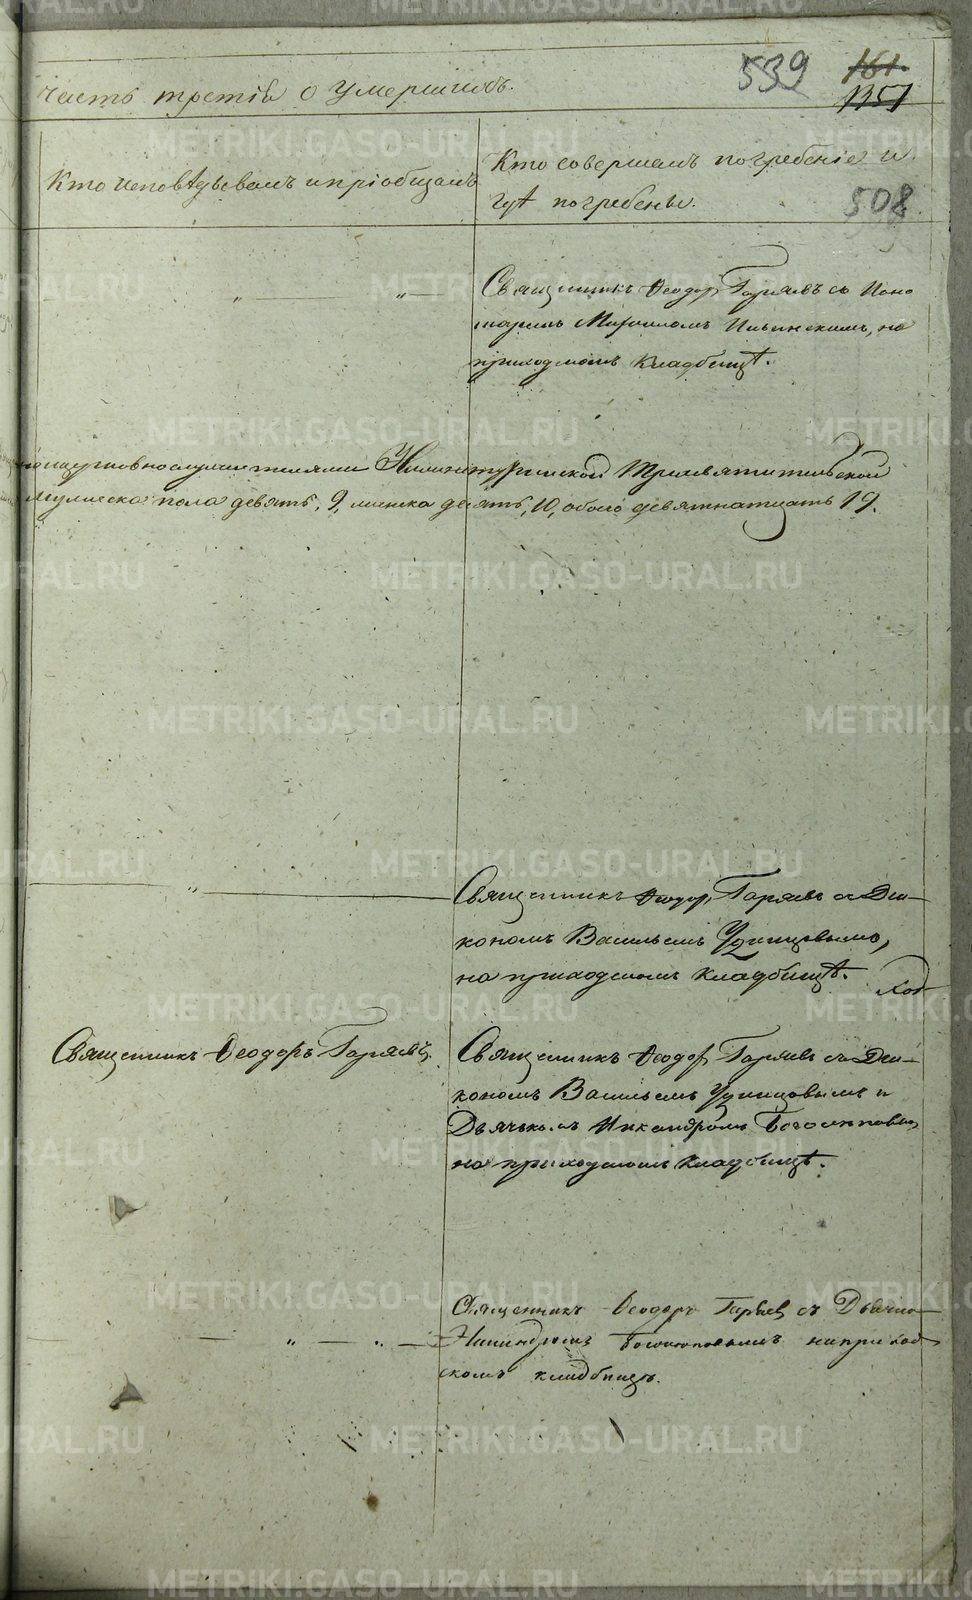 539 161.
1351
часть третiя о умершихъ.
Кто исповѣдывалъ и прiобщалъ
Кто совершалъ погребенiе и
гдѣ погребены.
508
Священникъ Ѳеодоръ Гаряевъ съ Поно
маремъ Ильинскимъ, на
приходскомъ кладбищѣ.
Нижнетуринской Трехсвятительской
мужеска пола девять, 9, женска десять, 10, обоего девятнатцать 19.
Священникъ Ѳеодоръ Гаряевъ съ Диа-
кономъ Васильемъ Удинцовымъ,
на приходскомъ кладбищѣ.
Священникъ Ѳеодоръ Гаряевъ.
Священникъ Ѳеодоръ Гаряевъ съ Диа-
кономъ Васильемъ Удинцовымъ и
Дьячькомъ Никандромъ
на приходскомъ кладбищѣ.
Священникъ Ѳеодоръ Гаряев съ Дьячко-
Никандромъ на приход-
скомъ кладбищѣ.
METRIKI.GASO-URAL.RU